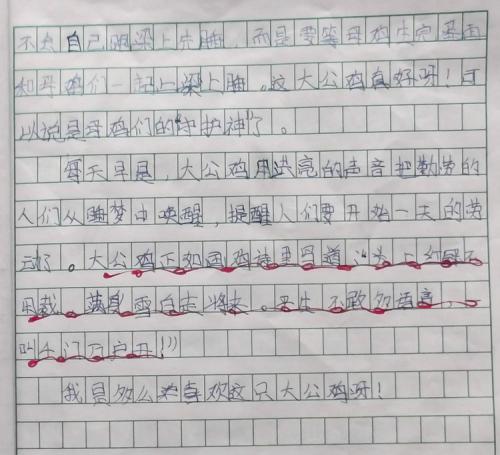 不会自己跳梁上先睡,而是要等母鸡生完蛋后
和母鸡们一起上梁上睡。这大公鸡真好呀!可
以说是母鸡们的“守护神”了。
每天早晨,大公鸡用洪亮的声音把勤劳的
人们从睡梦中唤醒,提醒人们要开始一天的劳
动了。大公鸡正如画鸡诗里写道:“头上红冠不
用裁,满身雪白走将来。平生不敢多语言,一
叫千门万户开!”
我是多么喜欢这只大公鸡呀!